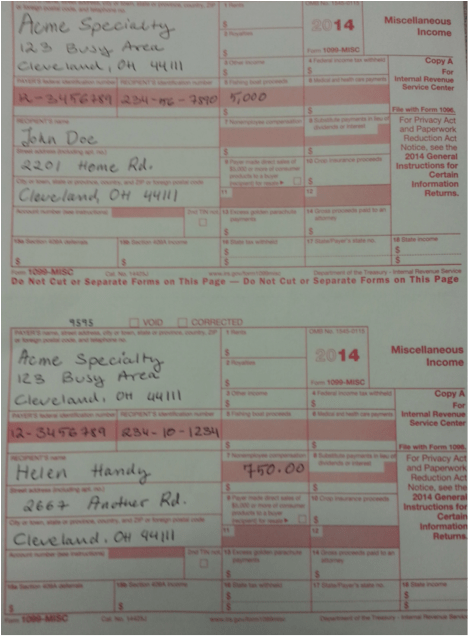 or foreign postal code, and telephone no.
Acme Specialty
123 Busy Area
Cleveland, OH 44111
1 Rents
$
2 Royalties
$
OMB No. 1545-0115
2014
Form 1099-MISC
Miscellaneous
Income
3 Other income
$
4 Federal income tax withheld
$
Copy A
For
Internal Revenue
Service Center
File with Form 1096.
PAYER'S federal identification number
RECIPIENT'S identification number
5 Fishing boat proceeds
6 Medical and health care payments
12-3456789
5,000
$
$
RECIPIENT'S name
John Doe
7 Nonemployee compensation
8 Substitute payments in lieu of
dividends or interest
$
$
For Privacy Act
and Paperwork
Reduction Act
Notice, see the
2014 General
Instructions for
Certain
Information
Returns.
Street address (including apt. no.)
2201 Home Rd.
9 Payer made direct sales of
$5,000 or more of consumer
products to a buyer
(recipient) for resale
10 Crop insurance proceeds
$
City or town, state or province, country, and ZIP or foreign postal code
Cleveland, OH 44111
11
12
Account number (see instructions)
2nd TIN not.
13 Excess golden parachute
payments
$
14 Gross proceeds paid to an
attorney
$
15a Section 409A deferrals
$
15b Section 409A income
$
16 State tax withheld
$
$
17 State/Payer's state no.
18 State income
$
$
Form 1099-MISC
Cat. No. 14425J
www.irs.gov/form1099misc
Department of the Treasury - Internal Revenue Service
Do Not Cut or Separate Forms on This Page — Do Not Cut or Separate Forms on This Page
9595
VOID
CORRECTED
PAYER'S name, street address, city or town, state or province, country, ZIP
or foreign postal code, and telephone no.
Acme Specialty
123 Busy Area
Cleveland, OH 44111
1 Rents
$
2 Royalties
$
OMB No. 1545-0115
2014
Form 1099-MISC
Miscellaneous
Income
3 Other income
$
4 Federal income tax withheld
$
Copy A
For
Internal Revenue
Service Center
File with Form 1096.
PAYER'S federal identification number
RECIPIENT'S identification number
5 Fishing boat proceeds
6 Medical and health care payments
12-3456789
234-10-1234
$
$
RECIPIENT'S name
Helen Handy
7 Nonemployee compensation
750.00
$
8 Substitute payments in lieu of
dividends or interest
$
For Privacy Act
and Paperwork
Reduction Act
Notice, see the
2014 General
Instructions for
Certain
Information
Returns.
Street address (including apt. no.)
2667 Another Rd.
9 Payer made direct sales of
$5,000 or more of consumer
products to a buyer
(recipient) for resale
10 Crop insurance proceeds
$
City or town, state or province, country, and ZIP or foreign postal code
Cleveland, OH 44111
11
12
Account number (see instructions)
2nd TIN not.
13 Excess golden parachute
payments
$
14 Gross proceeds paid to an
attorney
$
15a Section 409A deferrals
$
15b Section 409A income
$
16 State tax withheld
$
$
17 State/Payer's state no.
18 State income
$
$
Form 1099-MISC
Cat. No. 14425J
www.irs.gov/form1099misc
Department of the Treasury - Internal Revenue Service